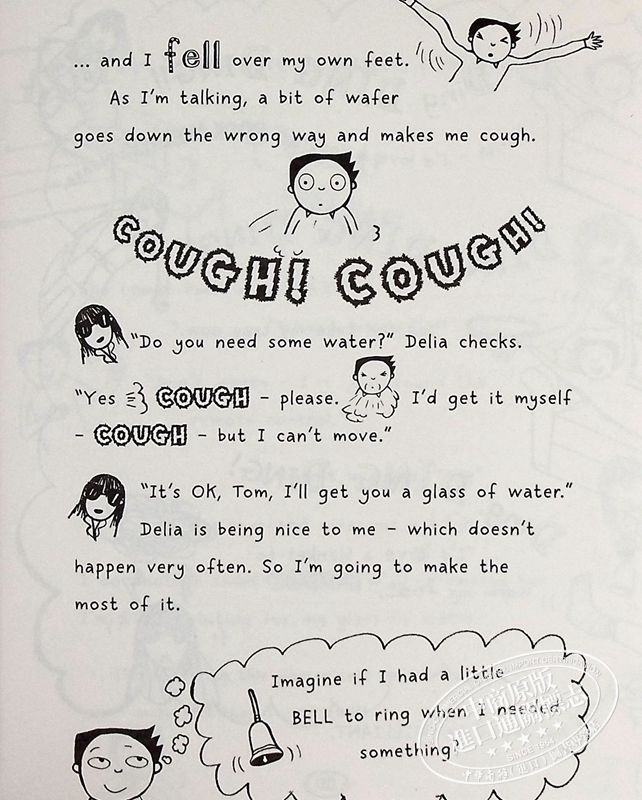 ... and I fell over my own feet.
As I'm talking, a bit of wafer
goes down the wrong way and makes me cough.
COUGH! COUGH!
"Do you need some water?" Delia checks.
"Yes COUGH - please. I'd get it myself
- COUGH - but I can't move."
"It's OK, Tom, I'll get you a glass of water."
Delia is being nice to me - which doesn't
happen very often. So I'm going to make the
most of it.
Imagine if I had a little
BELL to ring when I needed
something?
中国原版
進口通源標誌
SINCE 1954